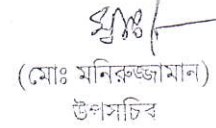 (মোঃ মনিরুজ্জামান)
উপসচিব